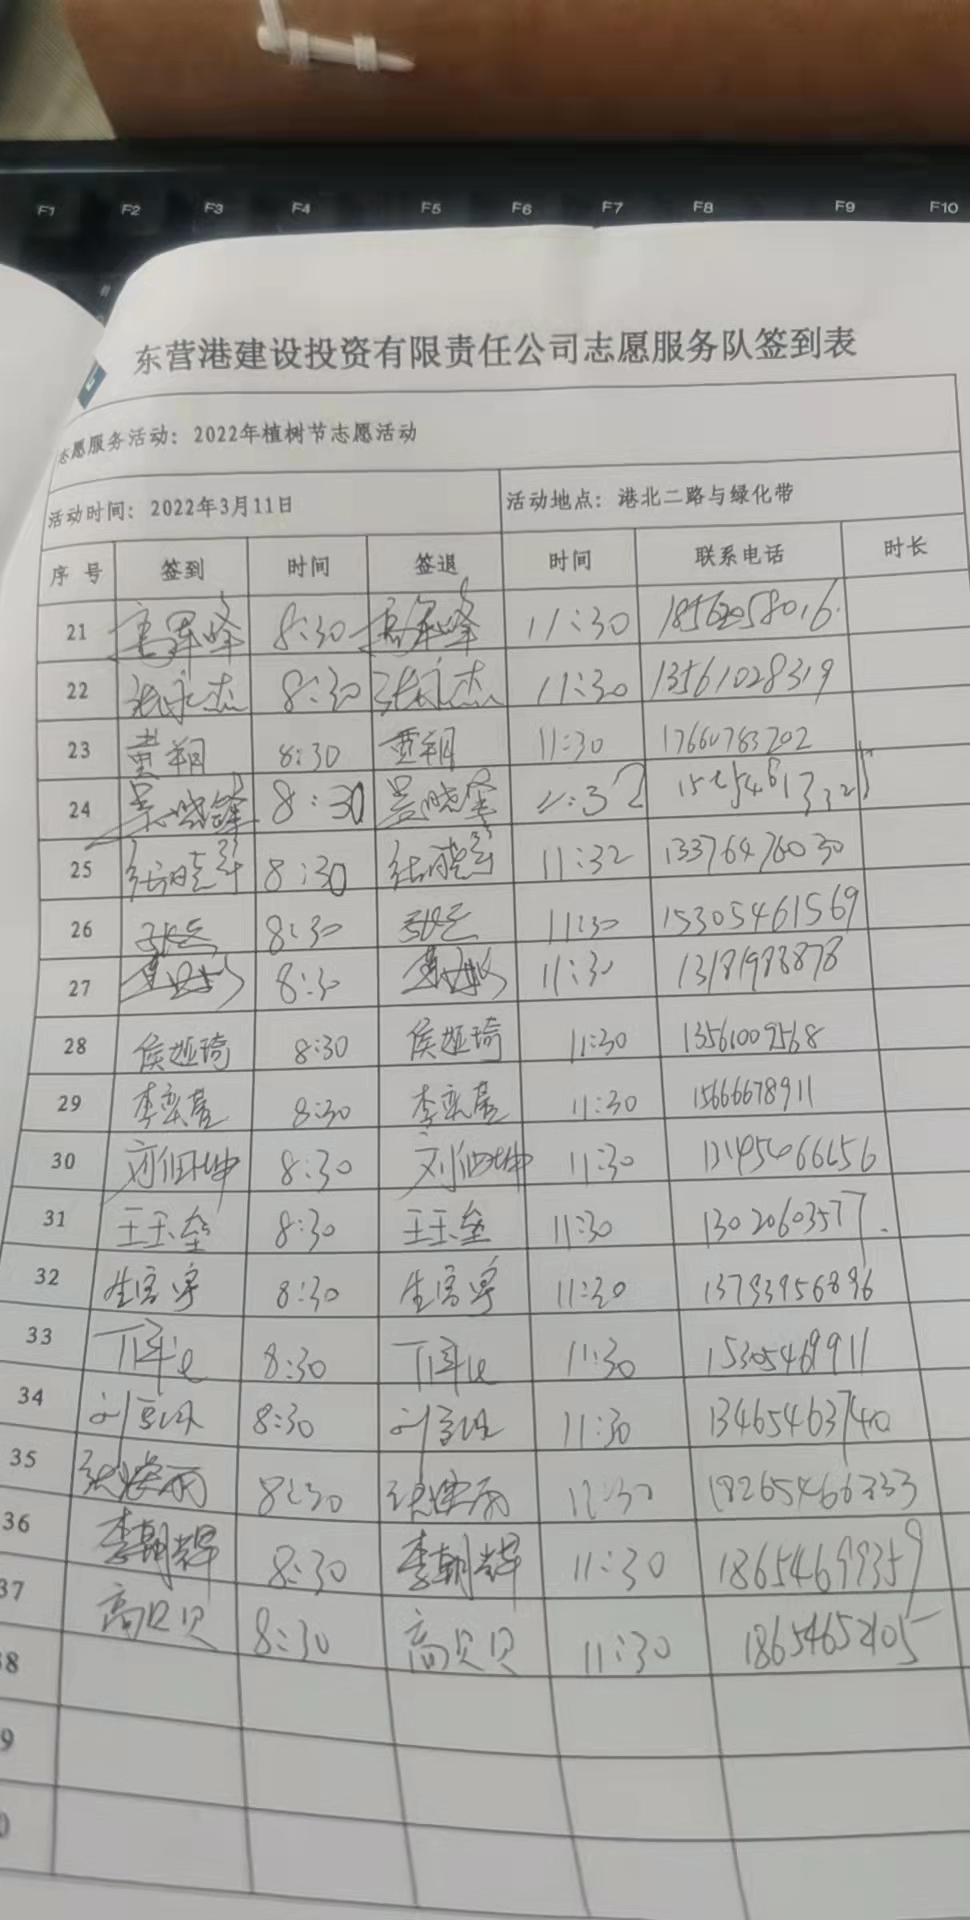 F1 F2 F3 F4 F5 F6 F7 F8 F9 F10
东营港建设投资有限责任公司志愿服务队签到表
志愿服务活动：2022年植树节志愿活动
活动时间：2022年3月11日 活动地点：港北二路与绿化带
序号 签到 时间 签退 时间 联系电话 时长
21 8:30 11:30 18562058016
22 张永杰 8:30 张永杰 11:30 13561028319
23 8:30 11:30 17660783202
24 8:30 11:32
25 张晓彤 8:30 张晓彤 11:32 13376476030
26 8:30 11:30 15305461569
27 8:30 11:30 13181983878
28 侯娅琦 8:30 侯娅琦 11:30 13561009568
29 李奕蓓 8:30 李奕蓓 11:30 15666678911
30 刘佃坤 8:30 刘佃坤 11:30
31 王玉垒 8:30 王玉垒 11:30 13020603577
32 8:30 11:30 13793956896
33 8:30 11:30 15305469911
34 8:30 11:30 13465463740
35 8:30 11:30 18265466333
36 李朝辉 8:30 李朝辉 11:30 18654699359
37 高贝贝 8:30 高贝贝 11:30 18654652105
8
9
0